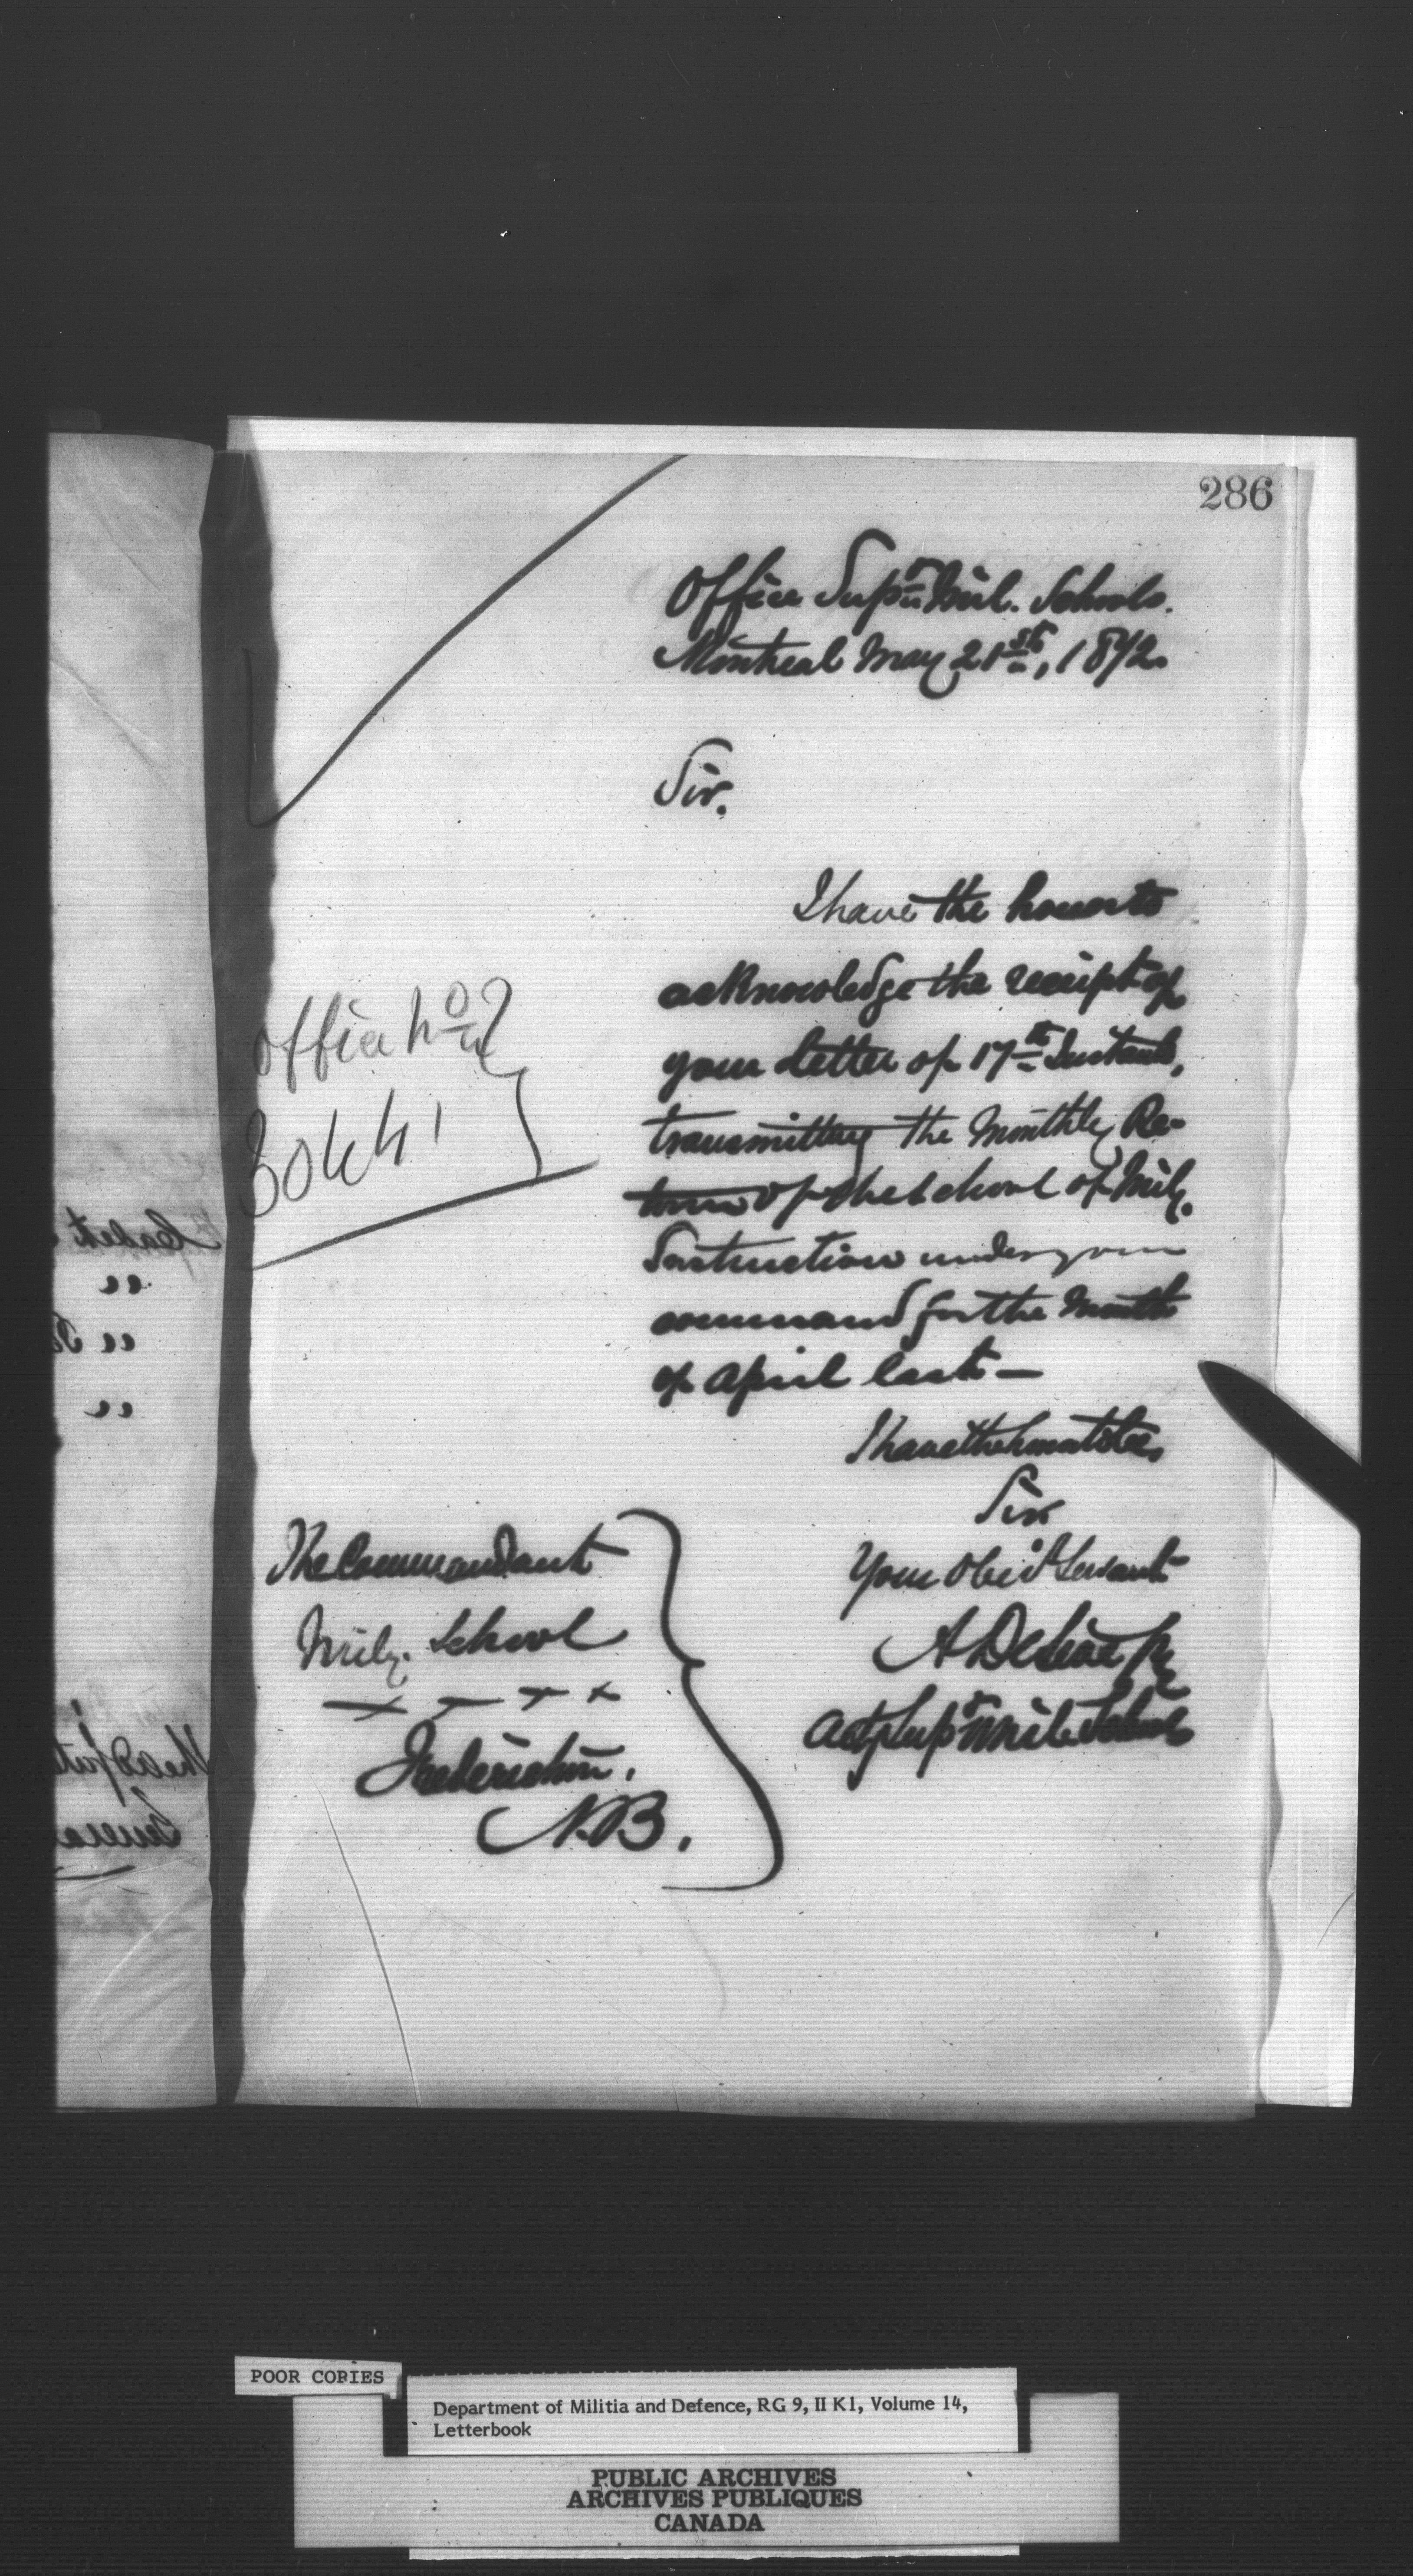 286
Office Supt. Mil. Schools.
Montreal May 21st, 1872.
Sir,
I have the honor to
acknowledge the receipt of
your Letter of 17th Instant,
transmitting the Monthly Re-
turn of the School of Mily.
Instruction under your
command for the Month
of April last —
I have the honor to be,
Sir
Your Obed. Servant
Office No.
The Commandant
Mily. School
Fredericton,
N.B.
Actg Supt Mil. Schools
POOR COPIES
Department of Militia and Defence, RG 9, II K1, Volume 14,
Letterbook
PUBLIC ARCHIVES
ARCHIVES PUBLIQUES
CANADA